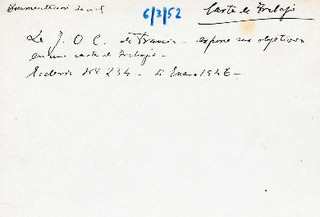 Documentacion social 6/3/52 Carta de Trabajo
La J. O C. de Francia - expone sus objetivos
en una carta de Trabajo -
Ecclesia Nº 234 - 5 Enero 1946 -